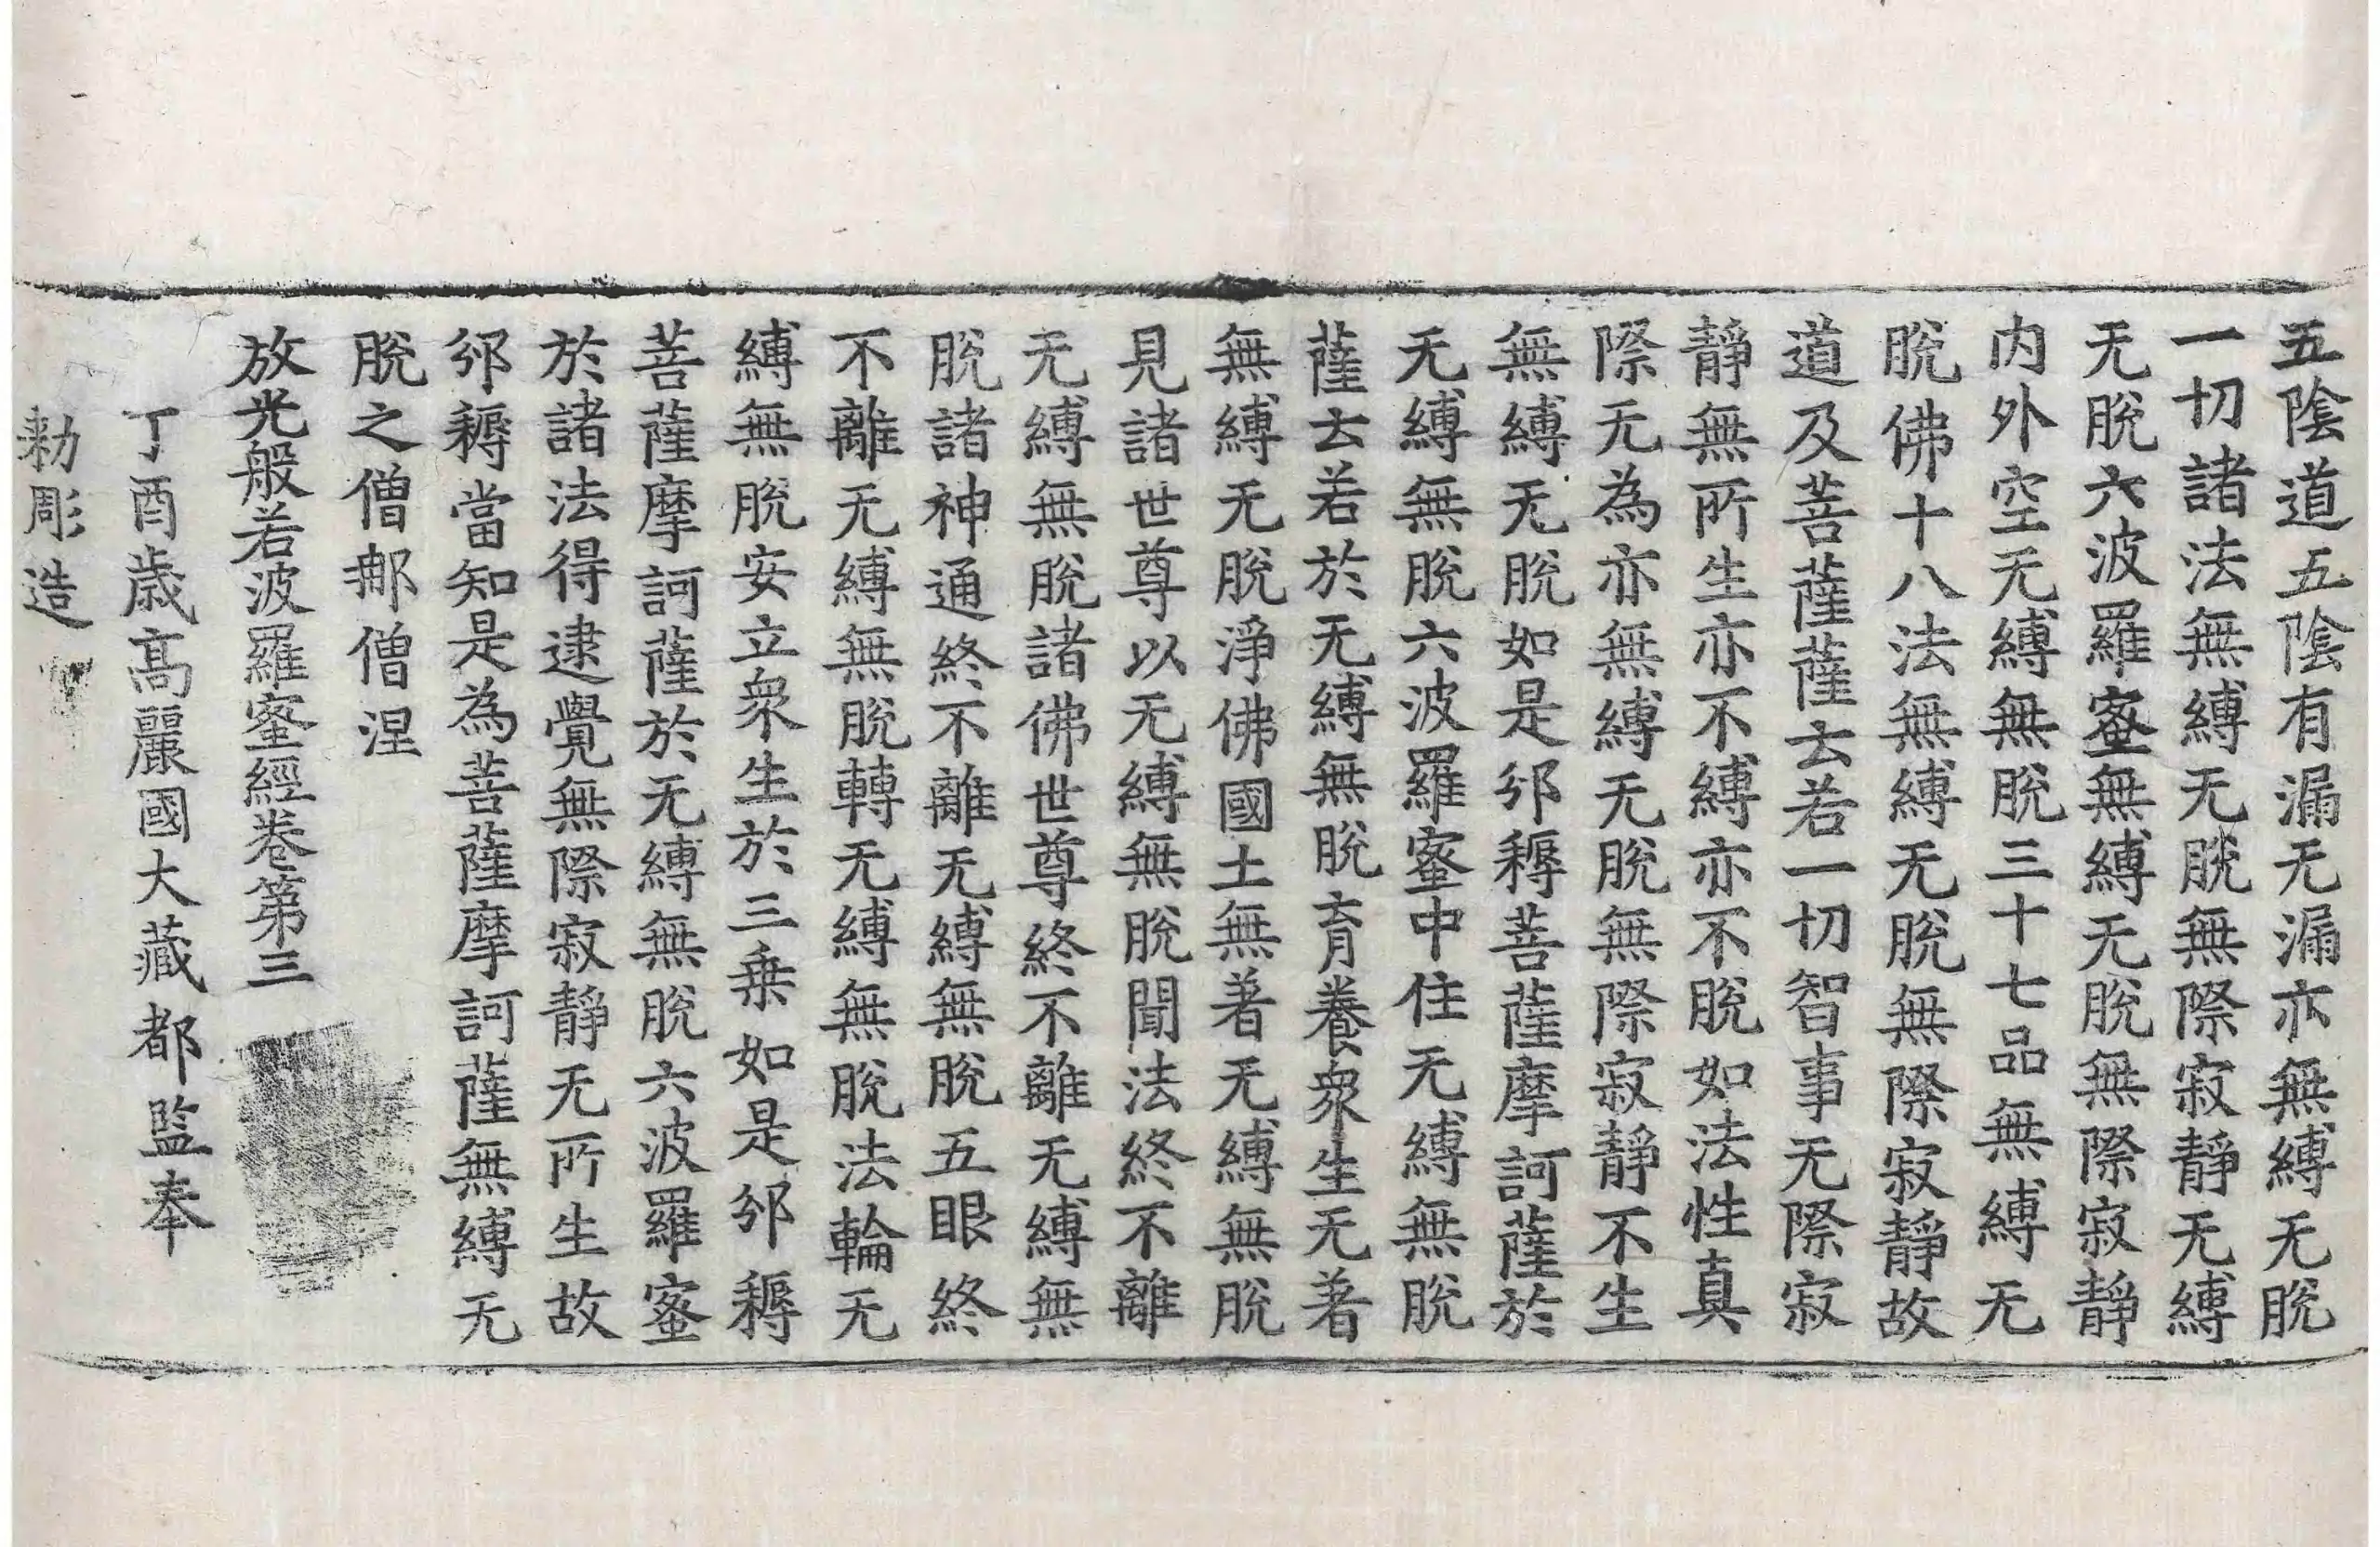 五陰道五陰有漏无漏亦無縛无脫
一切諸法無縛无脫無際寂靜无縛
无脫六波羅蜜無縛无脫無際寂靜
内外空无縛無脫三十七品無縛无
脫佛十八法無縛无脫無際寂靜故
道及菩薩薩云若一切智事无際寂
靜無所生亦不縛亦不脫如法性真
際无為亦無縛无脫無際寂靜不生
無縛无脫如是邠耨菩薩摩訶薩於
无縛無脫六波羅蜜中住无縛無脫
薩云若於无縛無脫育養衆生无著
無縛无脫淨佛國土無著无縛無脫
見諸世尊以无縛無脫聞法終不離
无縛無脫諸佛世尊終不離无縛無
脫諸神通終不離无縛無脫五眼終
不離无縛無脫轉无縛無脫法輪无
縛無脫安立衆生於三乗如是邠耨
菩薩摩訶薩於无縛無脫六波羅蜜
於諸法得逮覺無際寂靜无所生故
邠耨當知是為菩薩摩訶薩無縛无
脫之僧𨚗僧涅
放光般若波羅蜜經卷第三
丁酉歲髙麗國大藏都監奉
勑彫造